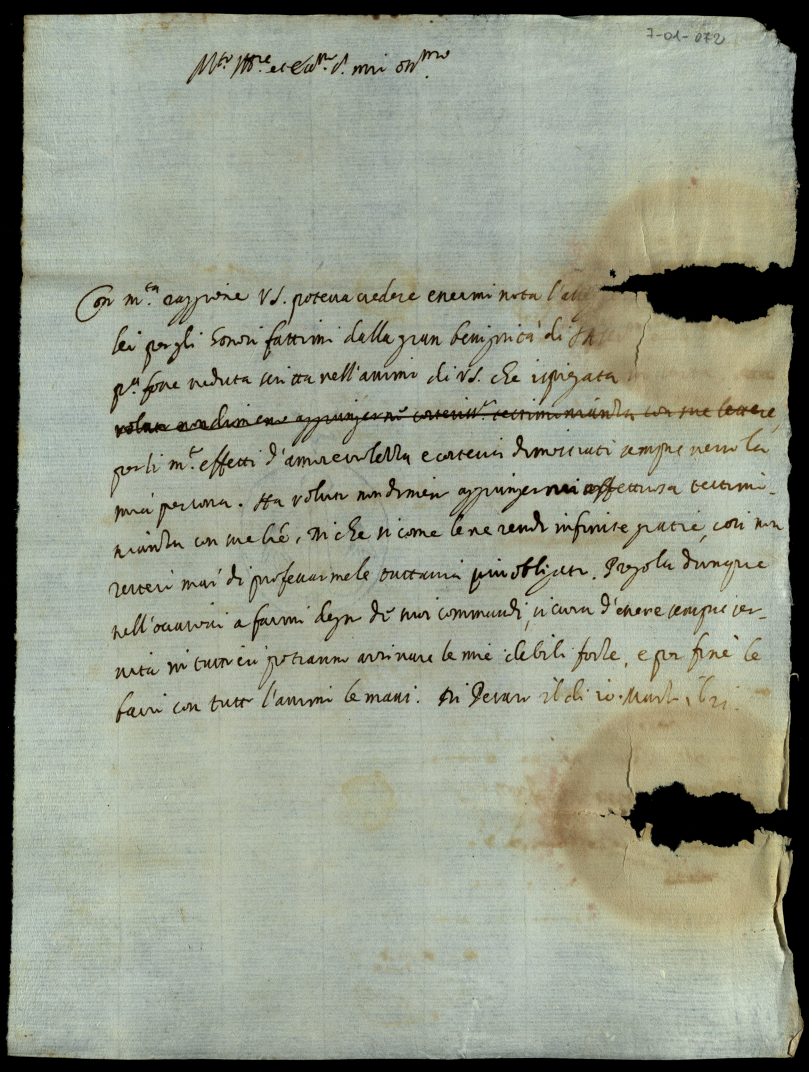 7-01-072
M.to Ill.re et Ecc.te S.r mio oss.mo
Con m.ta raggione V.S. poteva credere essermi nota l'alleg
lei per gli honori fattimi dalla gran benignità di
p.a fosse veduta scritta nell'animo di V.S. che ispiegata
voluto nondimeno aggiungerne cortesiss.a testimonianza con sue lettere,
per li m.ti effetti d'amorevolezza e cortesia dimostrati sempre verso la
mia persona. Ha voluto nondimeno aggiungervi affettuosa testimo-
nianza con sue l're, di che si come le ne rendo infinite gratie, così non
resterò mai di professarmele tuttavia più obligato. Pregola dunque
nell'occasioni a farmi degno de suoi commandi, sicura d'essere sempre ser-
vita in tutto ciò potranno arrivare le mie debili forze, e per fine le
bacio con tutto l'animo le mani. Di Pesaro il dì 10. Marzo 1621.